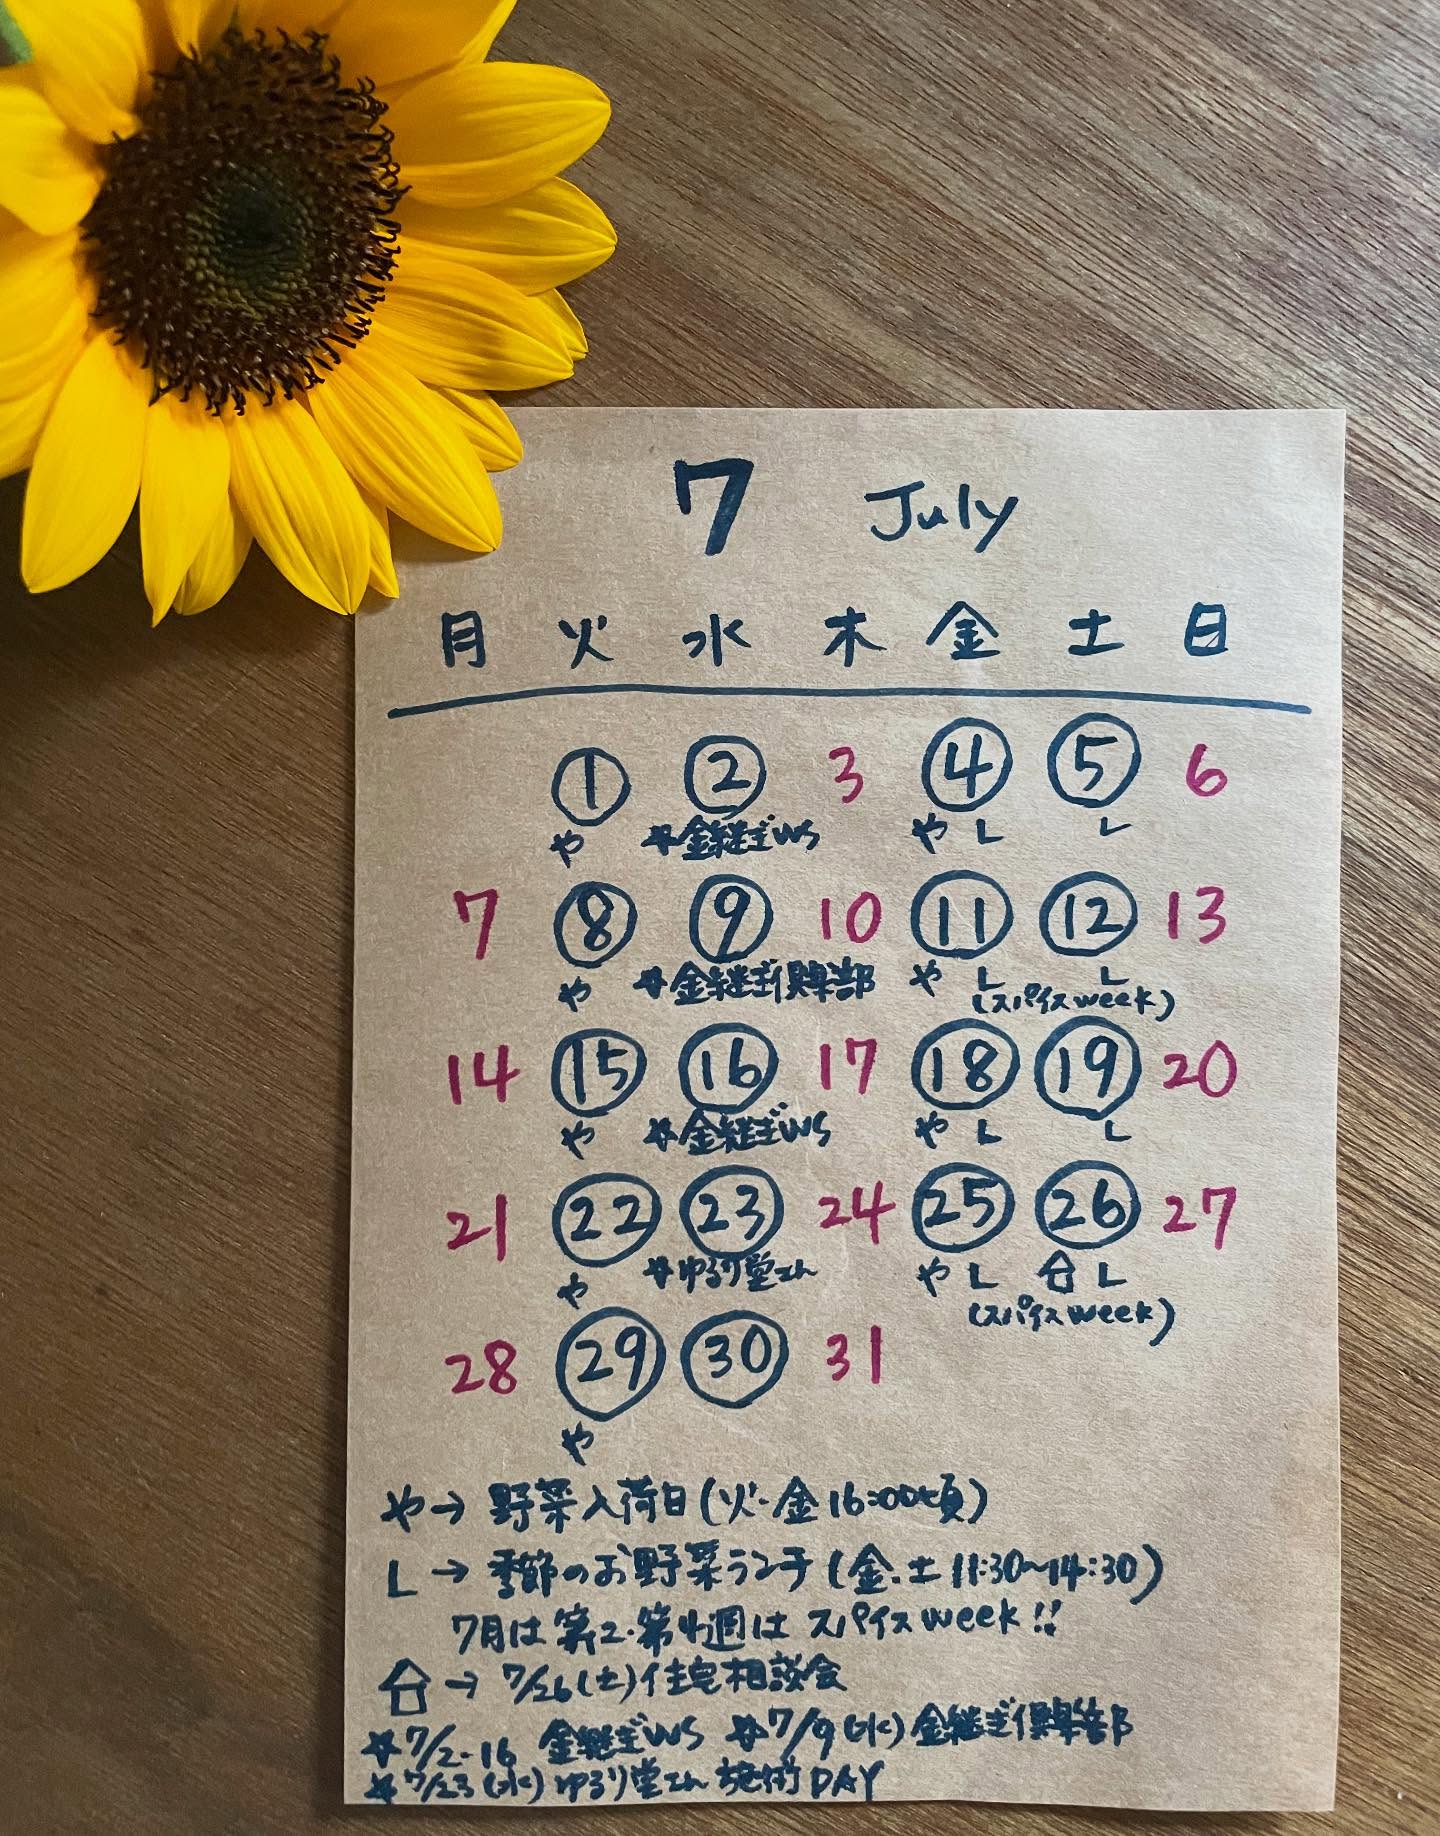 7 July
月 火 水 木 金 土 日
① ② 3 ④ ⑤ 6
や *金継ぎWS や L L
7 ⑧ ⑨ 10 ⑪ ⑫ 13
や *金継ぎ倶楽部 や L L
(スパイスweek)
14 ⑮ ⑯ 17 ⑱ ⑲ 20
や *金継ぎWS や L L
21 ㉒ ㉓ 24 ㉕ ㉖ 27
や *ゆるり堂さん や L L
(スパイスweek)
28 ㉙ ㉚ 31
や
や→ 野菜入荷日(火・金16:00頃)
L → 季節のお野菜ランチ(金.土 11:30~14:30)
7月は第2.第4週は スパイスweek!!
→ 7/26(土)住宅相談会
*7/2.16 金継ぎWS *7/9(水)金継ぎ倶楽部
*7/23(水)ゆるり堂さん 施術DAY